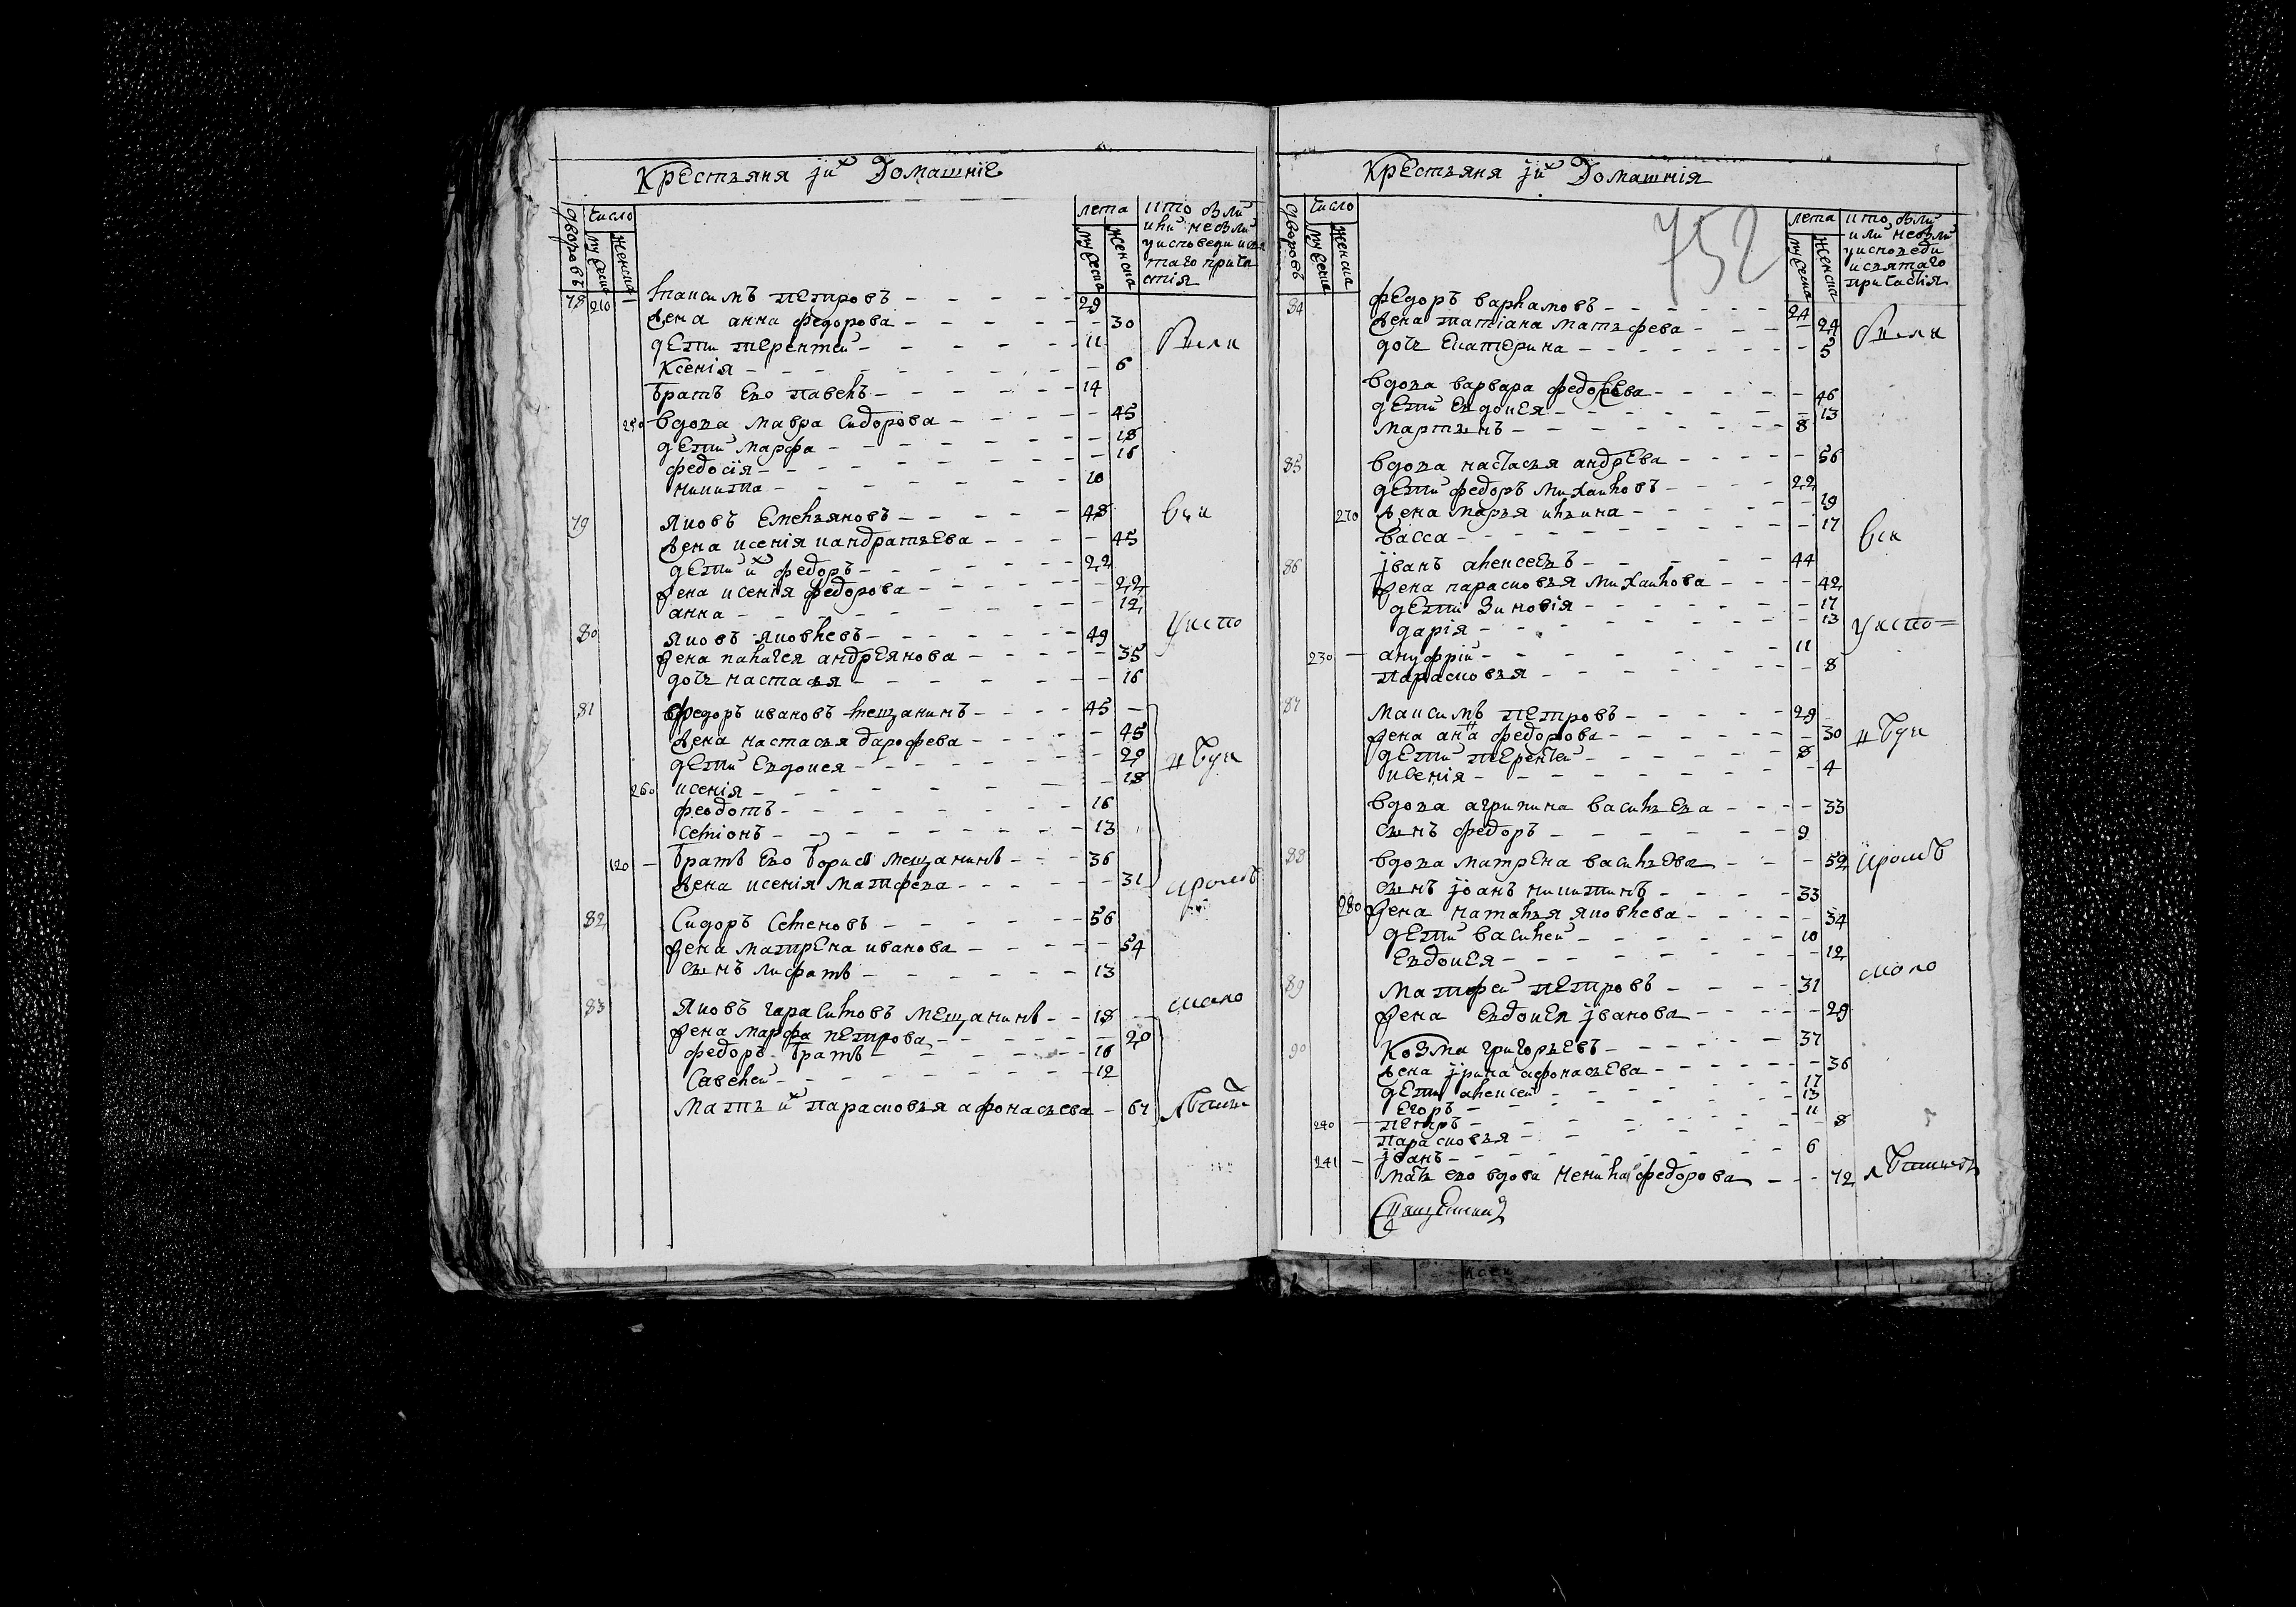 Крестьяня и͏̈х Домашніе
дворовъ
число
мужеска
женска
лета
мужеска
женска
кто были
или небыли
уисповеди исвя
таго прича
стія
78 210 Максимъ петровъ - - - - - 29
жена анна федорова - - - - - 30
дети терентей - - - - - 11
Ксенія - - - - - 6
братъ ево павелъ - - - - - 14
250 вдова мавра сидорова - - - - 45
дети марфа - - - - - 18
федосія - - - - - 16
никита - - - - - 10
79 яковъ емельяновъ - - - - 48
жена ксенія кандратьева - - - - 45
дети их федоръ - - - - - 22
жена ксенія федорова - - - - 22
анна - - - - - 12
80 яковъ яковлевъ - - - - - 49
жена палагея андреянова - - - - 35
дочь настасья - - - - - 16
81 федоръ ивановъ мещанинъ - - - - 45
жена настасья дарофева - - - - 45
дети евдокея - - - - - 20
260 ксенія - - - - - 18
феодотъ - - - - - 16
семіонъ - - - - - 13
120 - братъ ево борисъ мещанинъ - - - 36
жена ксенія матфева - - - - 31
82 Сидоръ Семеновъ - - - - 56
жена матрена иванова - - - - 54
сынъ - - - - - 13
83 яковъ гарасимовъ мещанинъ - - 18
жена марфа петрова - - - - 20
федоръ братъ - - - - - 16
Савелей - - - - - 12
Мать их парасковья афонасьева - 67
были
вси
уисто
и Буи
кроме
мало
лѣтни
Крестьяня и͏̈х Домашнія
752
дворовъ
число
мужеска
женска
лета
мужеска
женска
кто были
или небыли
уисповеди
исвятаго
причастія
84 федоръ варламовъ - - - - - 24
жена татіана матьфева - - - - 24
дочь екатерина - - - - - 5
вдова варвара федорева - - - - 46
дети евдокея - - - - - 13
мартынъ - - - - - 8
85 вдова настасья андрева - - - - 56
дети федоръ михаиловъ - - - - 22
270 жена марья ильина - - - - 19
васса - - - - - 17
86 іванъ алексеевъ - - - - 44
жена парасковья михаилова - - - - 42
дети зиновія - - - - - 17
дарія - - - - - 13
230 - ануфрій - - - - - 11
парасковья - - - - - 8
87 максимъ петровъ - - - - - 29
жена анна федорова - - - - - 30
дети терентей - - - - - 8
ксенія - - - - - 4
вдова агрипина васильева - - - - 33
сынъ федоръ - - - - - 9
88 вдова матрена васильева - - - 52
сынъ іоанъ никитинъ - - - - 33
280 жена наталья яковлева - - - - 34
дети василей - - - - - 10
евдокея - - - - - 12
89 матфей петровъ - - - - 31
жена евдокея іванова - - - - 29
90 Козма григорьевъ - - - - - 37
жена ірина афонасьева - - - - 36
дети алексей - - - - - 17
егоръ - - - - - 13
240 - петръ - - - - - 11
парасковья - - - - - 8
241 - іванъ - - - - - 6
мать ево вдова неонила федорова - - - 72
были
вси
уисто=
и Буи
кромѣ
мало
Священникъ